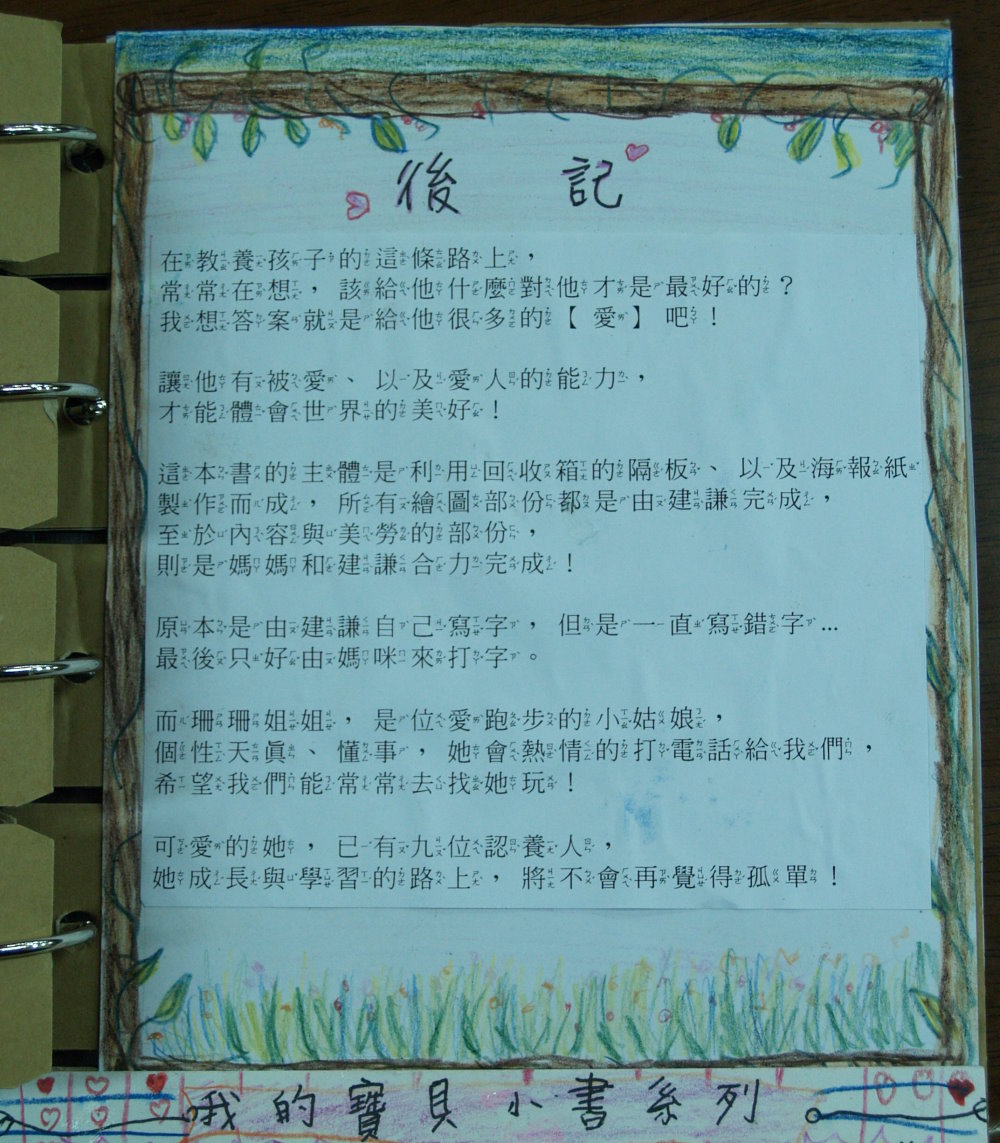 後 記
在教養孩子的這條路上，
常常在想，該給他什麼對他才是最好的？
我想答案就是給他很多的【愛】吧！
讓他有被愛、以及愛人的能力，
才能體會世界的美好！
這本書的主體是利用回收箱的隔板、以及海報紙
製作而成，所有繪圖部份都是由建謙完成，
至於內容與美勞的部份，
則是媽媽和建謙合力完成！
原本是由建謙自己寫字，但是一直寫錯字…
最後只好由媽咪來打字。
而珊珊姐姐，是位愛跑步的小姑娘，
個性天真、懂事，她會熱情的打電話給我們，
希望我們能常常去找她玩！
可愛的她，已有九位認養人，
她成長與學習的路上，將不會再覺得孤單！
我的寶貝小書系列